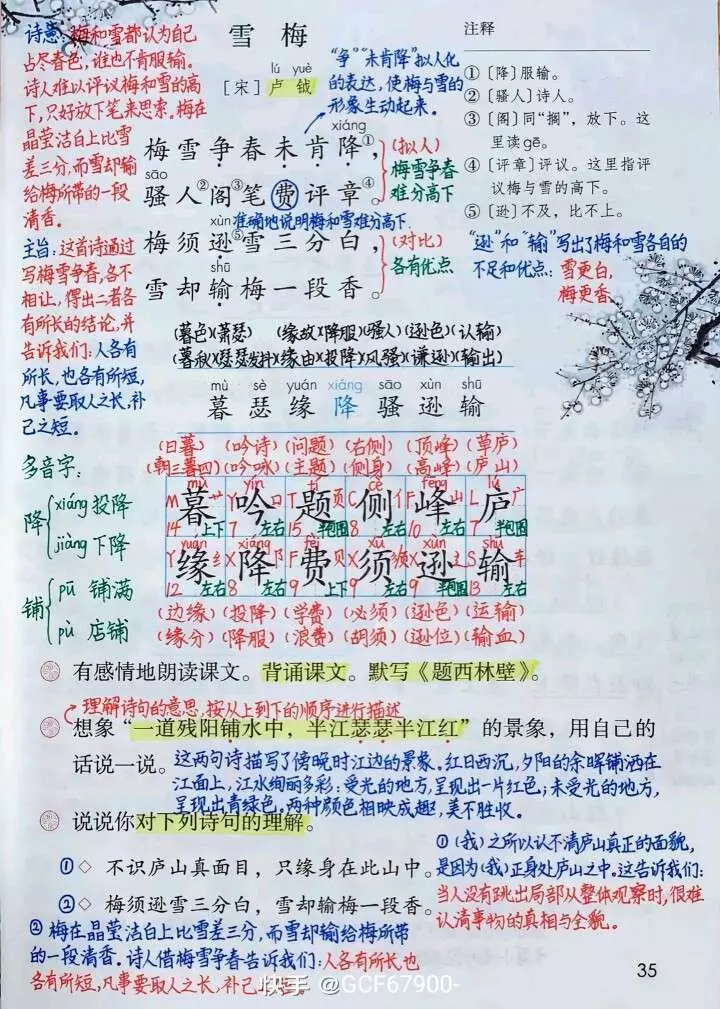 诗意：梅和雪都认为自己
占尽春色，谁也不肯服输。
诗人难以评议梅和雪的高
下，只好放下笔来思索。梅在
晶莹洁白上比雪
差三分，而雪却输
给梅所带的一段
清香。
主旨：这首诗通过
写梅雪争春，各不
相让，得出二者各
有所长的结论，并
告诉我们：人各有
所长，也各有所短，
凡事要取人之长，补
己之短。
雪梅
lú yuè
［宋］卢钺
"争""未肯降"拟人化
的表达，使梅与雪的
形象生动起来。
xiáng
梅雪争春未肯降①，
(拟人)
梅雪争春
难分高下
sāo
骚人②阁③笔费评章④。
准确地说明梅和雪难分高下.
xùn
梅须逊⑤雪三分白，
(对比)
各有优点
shū
雪却输梅一段香。
注释
①〔降〕服输。
②〔骚人〕诗人。
③〔阁〕同"搁"，放下。这
里读gē。
④〔评章〕评议。这里指评
议梅与雪的高下。
⑤〔逊〕不及，比不上。
"逊"和"输"写出了梅和雪各自的
不足和优点：雪更白，
梅更香。
(暮色)(萧瑟) (缘故)(降服)(骚人)(逊色)(认输)
(暮秋)(瑟瑟发抖)(缘由)(投降)(风骚)(谦逊)(输出)
mù sè yuán xiáng sāo xùn shū
暮 瑟 缘 降 骚 逊 输
(日暮) (吟诗) (问题) (右侧) (顶峰) (草庐)
(朝三暮四)(吟咏)(主题)(侧身)(高峰)(庐山)
mù yín tí cè fēng lú
暮 吟 题 侧 峰 庐
14 上下 7 左右 15 半包围 8 左右 10 左右 7 半包围
yuán xiáng fèi xū xùn shū
缘 降 费 须 逊 输
12 左右 8 左右 9 上下 9 左右 9 半包围 13 左右
(边缘) (投降) (学费) (必须) (逊色) (运输)
(缘分) (降服) (浪费) (胡须) (逊位) (输血)
多音字：
降
xiáng 投降
jiàng 下降
铺
pū 铺满
pù 店铺
有感情地朗读课文。背诵课文。默写《题西林壁》。
理解诗句的意思，按从上到下的顺序进行描述
想象"一道残阳铺水中，半江瑟瑟半江红"的景象，用自己的
话说一说。
这两句诗描写了傍晚时江边的景象。红日西沉，夕阳的余晖铺洒在
江面上，江水绚丽多彩：受光的地方，呈现出一片红色；未受光的地方，
呈现出青绿色，两种颜色相映成趣，美不胜收。
说说你对下列诗句的理解。
①◇ 不识庐山真面目，只缘身在此山中。
②◇ 梅须逊雪三分白，雪却输梅一段香。
①(我)之所以认不清庐山真正的面貌，
是因为(我)正身处庐山之中。这告诉我们：
当人没有跳出局部从整体观察时，很难
认清事物的真相与全貌。
②梅在晶莹洁白上比雪差三分，而雪却输给梅所带
的一段清香。诗人借梅雪争春告诉我们：人各有所长也
各有所短，凡事要取人之长，补己
快手 @GCF67900-
35